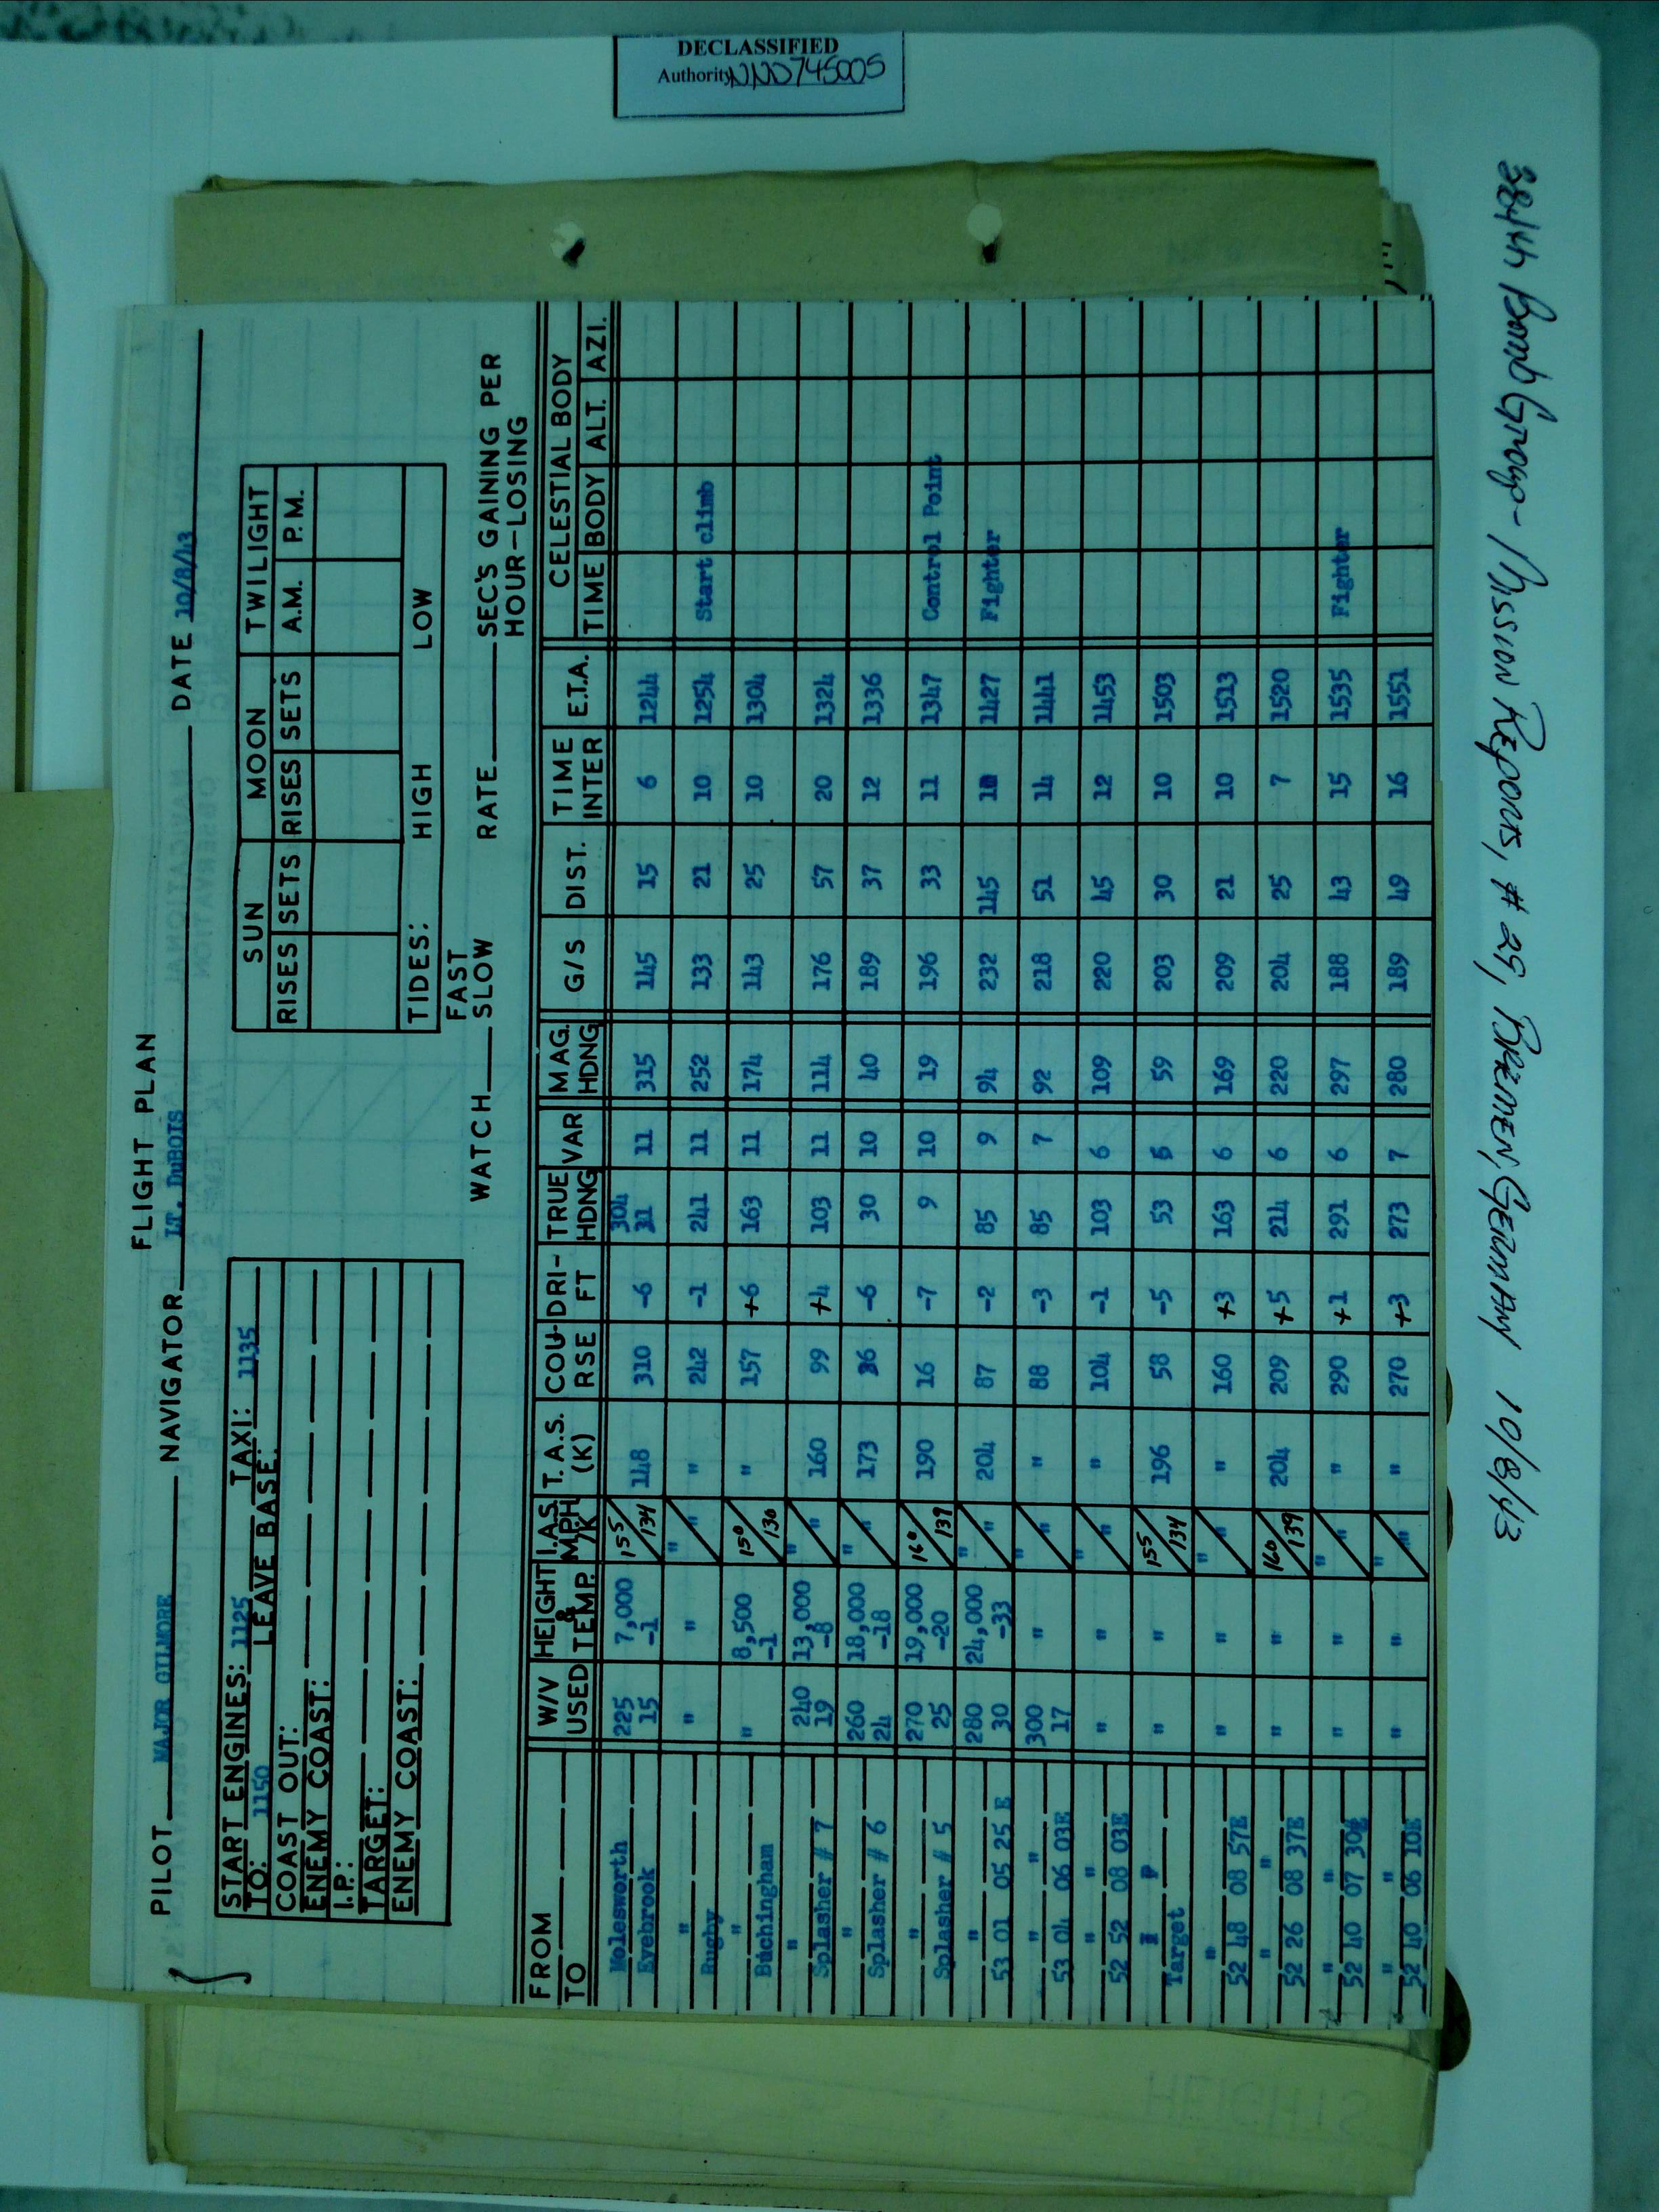 DECLASSIFIED
Authority NND745005
FLIGHT PLAN
PILOT MAJOR GILMORE NAVIGATOR LT. DuBOIS DATE 10/8/43
START ENGINES: 1125 TAXI: 1135
TO: 1150 LEAVE BASE:
COAST OUT:
ENEMY COAST:
I.P.:
TARGET:
ENEMY COAST:
SUN MOON TWILIGHT
RISES SETS RISES SETS A.M. P.M.
TIDES: HIGH LOW
WATCH FAST SLOW RATE SEC'S GAINING PER HOUR-LOSING
FROM TO W/V USED HEIGHT & TEMP. I.A.S. MPH/K T.A.S. (K) COURSE DRIFT TRUE HDNG VAR MAG. HDNG G/S DIST. TIME INTER E.T.A. CELESTIAL BODY TIME BODY ALT. AZI.
Molesworth Eyebrook 225 15 7,000 -1 155/134 148 310 -6 304 11 315 145 15 6 1244
" Rugby " " " " 242 -1 241 11 252 133 21 10 1254 Start climb
" Buchingham " 8,500 -1 150/130 " 157 +6 163 11 174 143 25 10 1304
" Splasher # 7 240 19 13,000 -8 " 160 99 +4 103 11 114 176 57 20 1324
" Splasher # 6 260 24 18,000 -18 " 173 36 -6 30 10 40 189 37 12 1336
" Splasher # 5 270 25 19,000 -20 160/139 190 16 -7 9 10 19 196 33 11 1347 Control Point
" 53 01 05 25 E 280 30 24,000 -33 " 204 87 -2 85 9 94 232 145 1427 Fighter
" 53 04 06 03E 300 17 " " " 88 -3 85 7 92 218 51 14 1441
" 52 52 08 03E " " " " 104 -1 103 6 109 220 45 12 1453
I P Target " " 155/134 196 58 -5 53 6 59 203 30 10 1503
" 52 48 08 57E " " " " 160 +3 163 6 169 209 21 10 1513
" 52 26 08 37E " " 160/139 204 209 +5 214 6 220 204 25 7 1520
" 52 40 07 30E " " " " 290 +1 291 6 297 188 43 15 1535 Fighter
" 52 40 06 10E " " " " 270 +3 273 7 280 189 49 16 1551
384th Bomb Group - Mission Reports, # 25, BREMEN, GERMANY 10/8/43